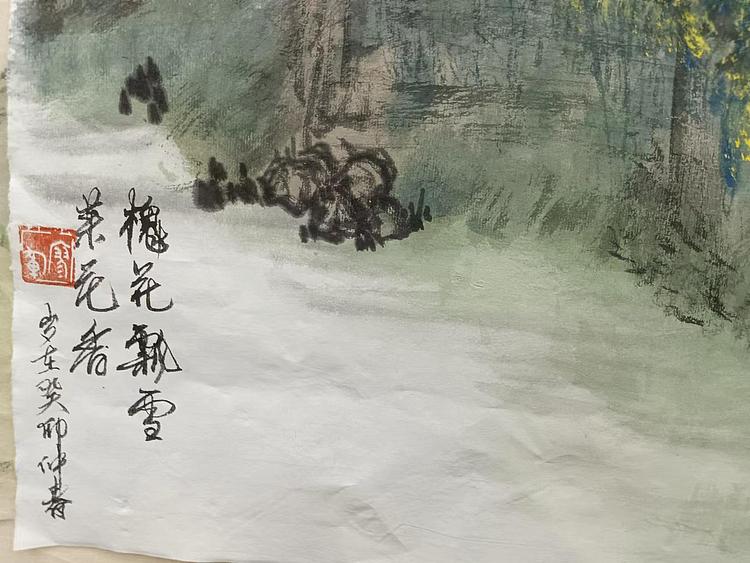 槐花飘雪
菜花香
岁在癸卯仲春